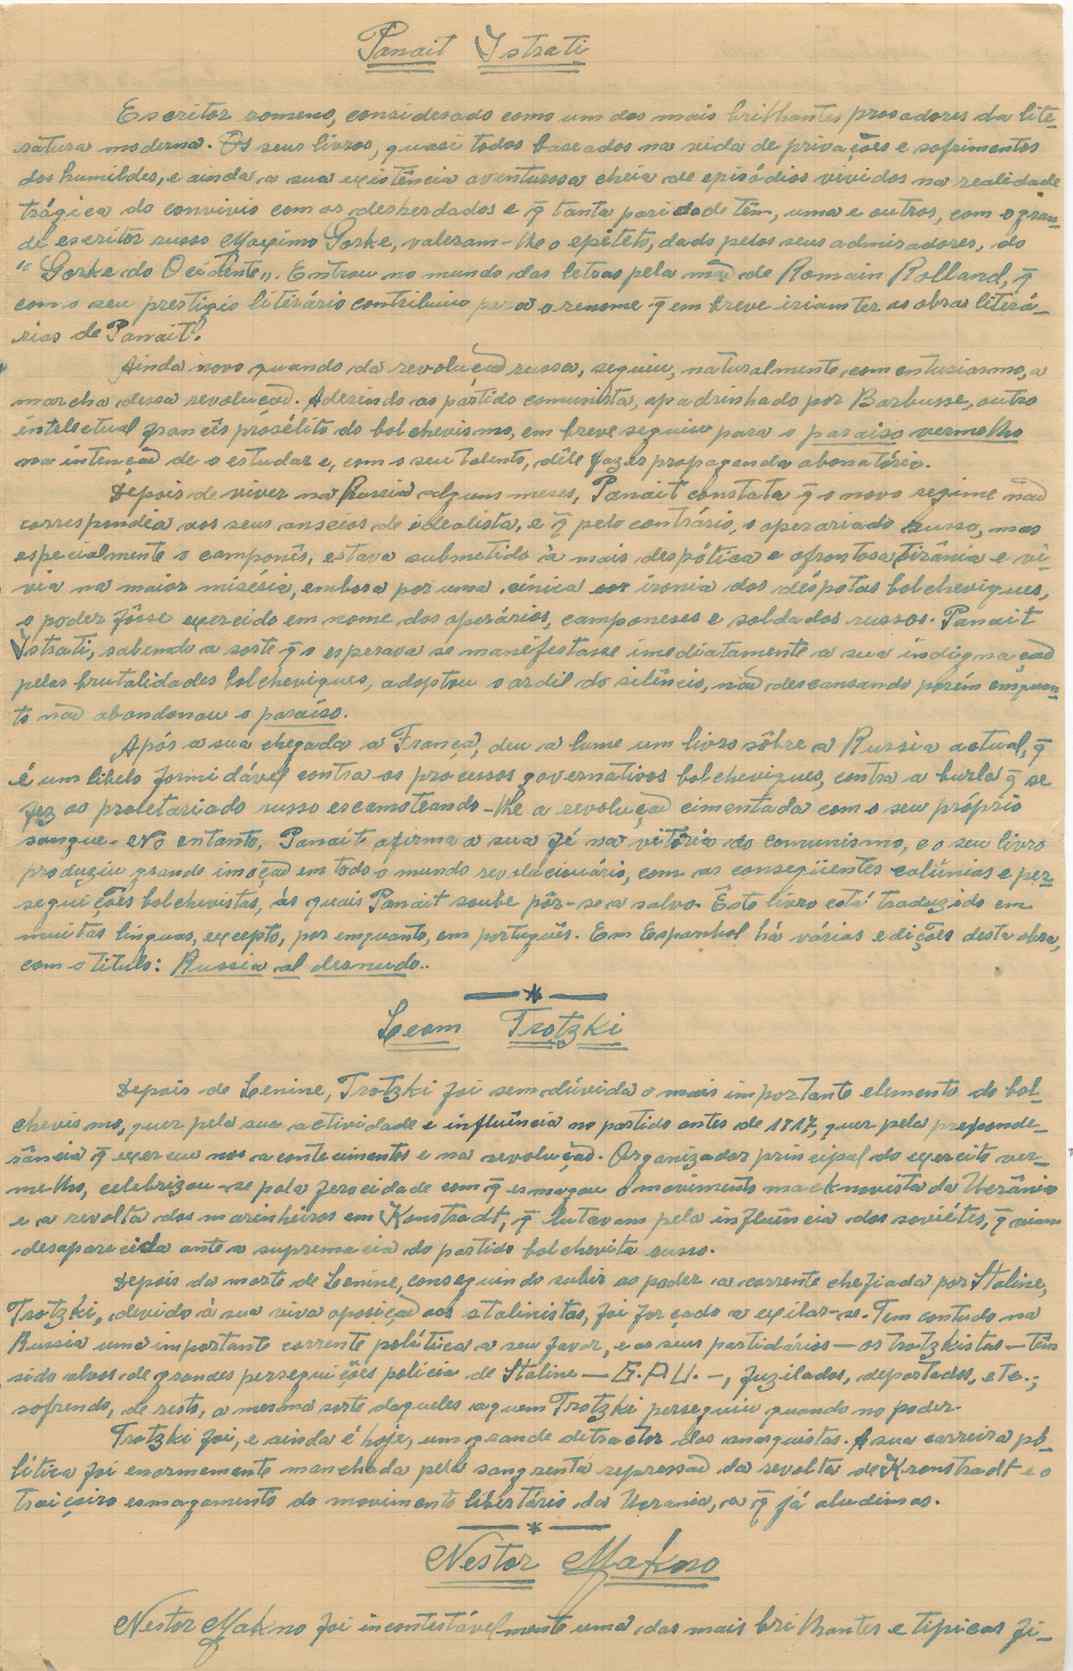 Panait Istrati
Escritor romeno, considerado como um dos mais brilhantes prosadores da lite-
ratura moderna. Os seus livros, quasi todos baseados na vida de privações e sofrimentos
dos humildes, e ainda a sua existência aventurosa cheia de episódios vividos na realidade
trágica do convivio com os desherdados e q̃ tanta paridade têm, uma e outros, com o gran-
de escritor russo Maximo Gorke, valeram-lhe o epíteto, dado pelos seus admiradores, do
"Gorke do Ocidente". Entrou no mundo das letras pela mão de Romain Rolland, q̃
com o seu prestígio literário contribuiu para o renome q̃ em breve iriam ter as obras literá-
rias de Panait.
Ainda novo quando da revolução russa, seguiu, naturalmente, com entusiasmo, a
marcha dessa revolução. Aderindo ao partido comunista, apadrinhado por Barbusse, outro
intelectual francês prosélito do bolchevismo, em breve seguiu para o paraiso vermelho
na intenção de o estudar e, com o seu talento, dêle fazer propaganda abonatória.
Depois de viver na Russia alguns meses, Panait constata q̃ o novo regime não
correspondia aos seus anseios de idealista, e q̃ pelo contrário, o operariado russo, mas
especialmente o camponês, estava submetido à mais despótica e afrontosa tirânia e vi-
via na maior miseria, embora por uma cínica ironia dos déspotas bolcheviques,
o poder fôsse exercido em nome dos operários, camponeses e soldados russos. Panait
Istrati, sabendo a sorte q̃ o esperava se manifestasse imediatamente a sua indignação
pelas brutalidades bolcheviques, adoptou o ardil do silêncio, não descansando porém emquan-
to não abandonou o paraíso.
Após a sua chegada a França, deu a lume um livro sôbre a Russia actual, q̃
é um libelo formidável contra os processos governativos bolcheviques, contra a burla q̃ se
fez ao proletariado russo escamoteando-lhe a revolução cimentada com o seu próprio
sangue. No entanto, Panait afirma a sua fé na vitória do comunismo, e o seu livro
produziu grande imoção em todo o mundo revolucionário, com as conseqüentes calúnias e per-
seguições bolchevistas, ás quais Panait soube pôr-se a salvo. Êste livro está traduzido em
muitas línguas, excepto, por emquanto, em português. Em Espanhol há várias edições desta obra,
com o titulo: Russia al desnudo..
Leam Trotzki
Depois de Lenine, Trotzki foi sem dúvida o mais importante elemento do bol-
chevismo, quer pela sua actividade e influência no partido antes de 1917, quer pela preponde-
rância q̃ exerceu nos acontecimentos e na revolução. Organizador principal do exercito ver-
melho, celebrizou-se pela ferocidade com q̃ esmagou o movimento macknovista da Ucrânia
e a revolta dos marinheiros em Kronstradt, q̃ lutavam pela influência dos soviétes, q̃ viam
desaparecida ante a supremacia do partido bolchevita russo.
Depois da morte de Lenine, conseguindo subir ao poder a corrente chefiada por Staline,
Trotzki, devido à sua viva oposição aos stalinistas, foi forçado a exilar-se. Tem contudo na
Russia uma importante corrente política a seu favor, e os seus partidários — os trotzkistas — têm
sido alvos de grandes perseguições polícia de Staline — G.P.U. —, fuzilados, deportados, etc.;
sofrendo, de resto, a mesma sorte daqueles a quem Trotzki perseguiu quando no poder.
Trotzki foi, e ainda é hoje, um grande detractor dos anarquistas. A sua carreira po-
lítica foi enormemente manchada pela sangrenta repressão da revolta de Kronstradt e o
traiçoiro esmagamento do movimento libertário da Ucrania, a q̃ já aludimos.
Nestor Makno
Nestor Makno foi incontestávelmente uma das mais brilhantes e tipicas fi-